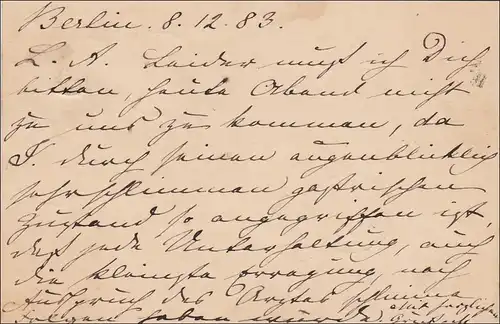 Berlin. 8. 12. 83.
L. A. Leider muß ich Dich
bitten, heute Abend nicht
zu uns zu kommen, da
J. durch seinen augenblicklich
sehr schlimmen gastrischen
Zustand so angegriffen ist,
daß jede Unterhaltung, auch
die kleinste Erregung, nach
Ausspruch des Arztes schlimme
Folgen haben würde.
Mit herzlichem
Gruß